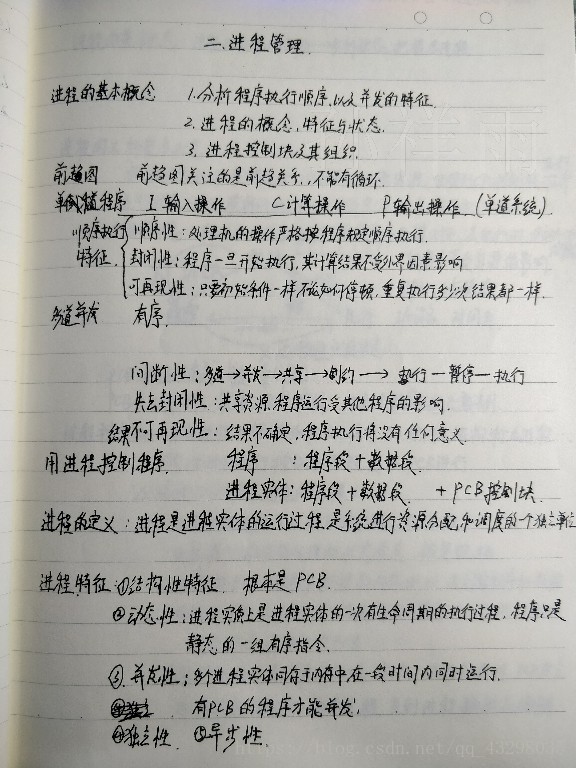 二.进程管理.
进程的基本概念 1.分析程序执行顺序,以及并发的特征.
2.进程的概念,特征与状态.
3.进程控制块及其组织.
前趋图 前趋图关注的是前趋关系,不能有循环.
单道程序 I 输入操作 C计算操作 P输出操作 (单道系统).
顺序执行 顺序性:处理机的操作严格按程序规定顺序执行.
特征. 封闭性:程序一旦开始执行,其计算结果不受外界因素影响
可再现性:只要初始条件一样不论如何停顿,重复执行多少次结果都一样.
多道并发 有序.
间断性:多道→并发→共享→制约→执行—暂停—执行
失去封闭性:共享资源,程序运行受其他程序的影响.
结果不可再现性:结果不确定,程序执行将没有任何意义.
用进程控制程序. 程序 :程序段+数据段.
进程实体:程序段+数据段. +PCB控制块.
进程的定义:进程是进程实体的运行过程,是系统进行资源分配和调度的一个独立单位
进程特征 ①结构性特征. 根本是PCB.
②动态性:进程实质上是进程实体的一次有生命周期的执行过程,程序只是
静态的一组有序指令.
③.并发性:多个进程实体同存于内存中在一段时间内同时运行.
有PCB的程序才能并发.
④独立性. ⑤异步性.
https://blog.csdn.net/qq_43298012